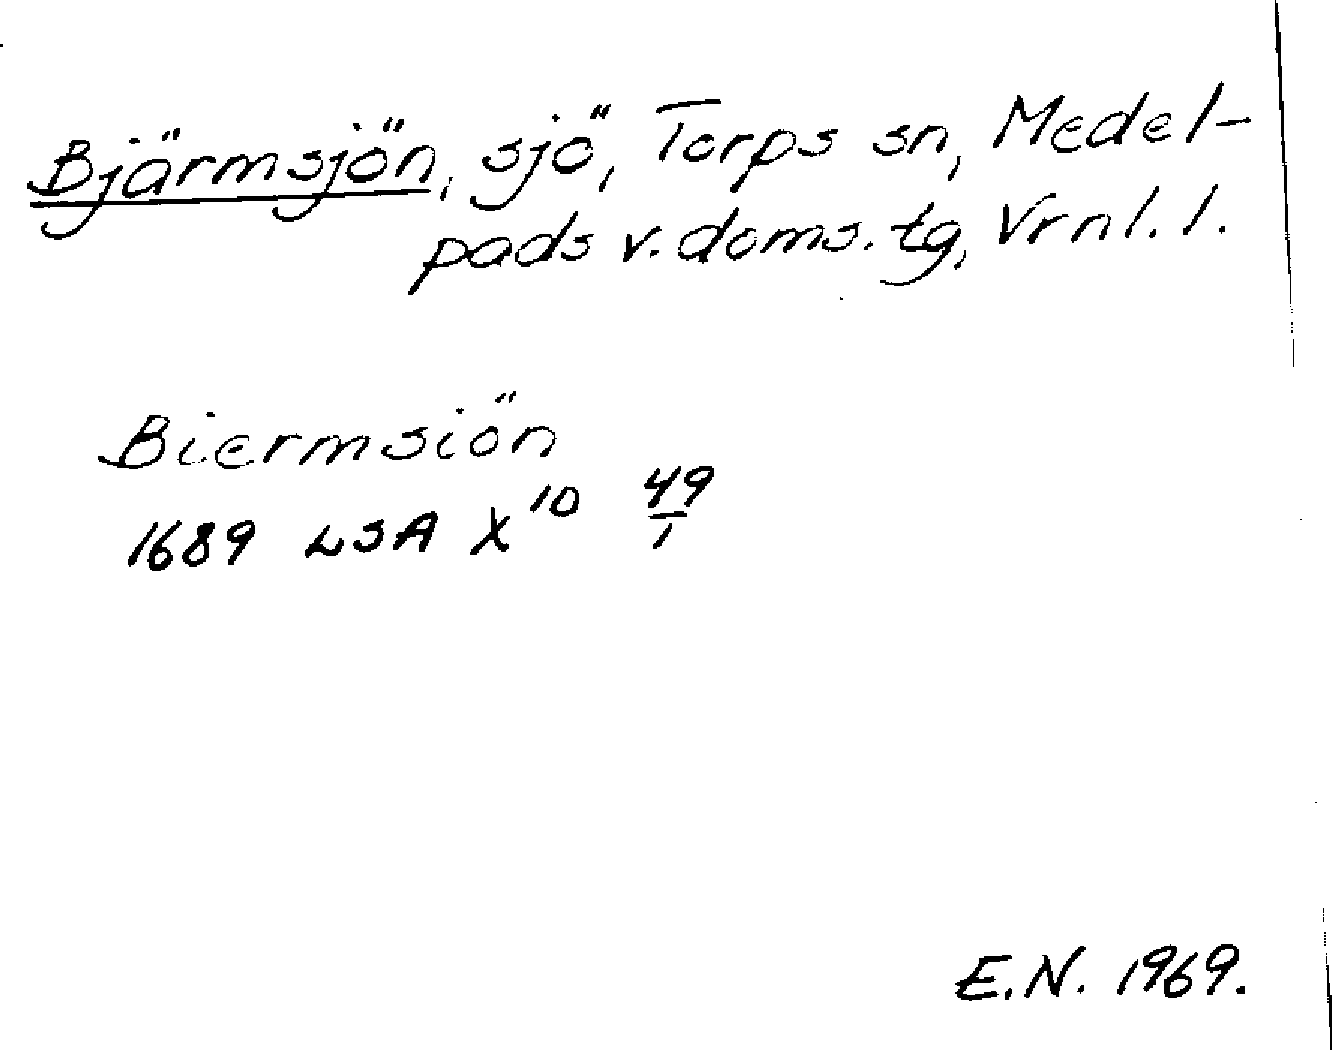 Bjärmsjön, sjö, Torps sn, Medel-
pads v. doms. tg, Vrnl. l.
Biermsiön
1689 LSA X¹⁰ 49/1
E.N. 1969.